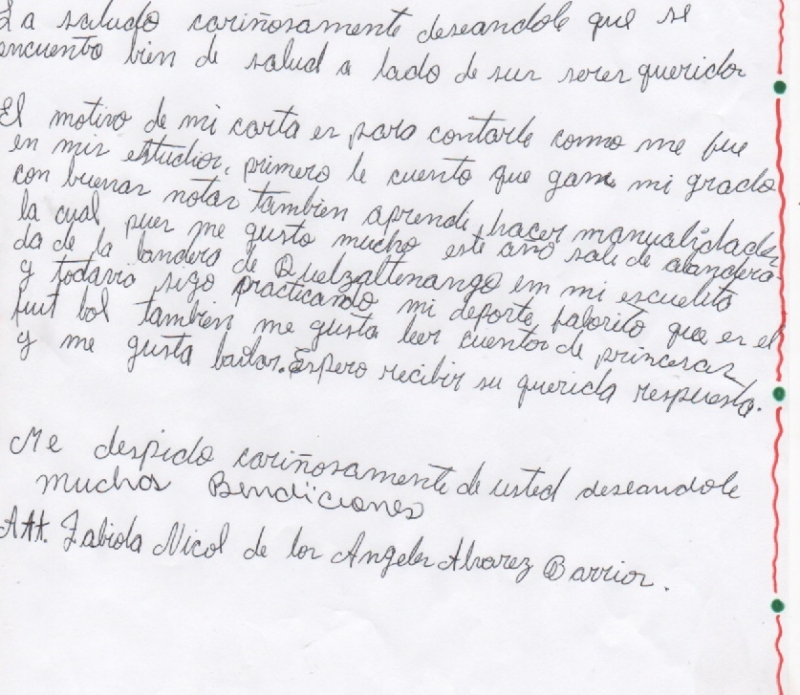 La saludo cariñosamente deseandole que se
encuentro bien de salud a lado de sus seres queridos
El motivo de mi carta es para contarle como me fue
en mis estudios, primero le cuento que gane mi grado
con buenas notas tambien aprendi hacer manualidades
la cual pues me gusto mucho este año sali de abandera-
da de la bandera de Quelzaltenango em mi escuelita
y todavia sigo practicando mi deporte faborito que es el
fuit bol tambien me gusta leer cuentos de princesas
y me gusta bailar. Espero recibir su querida respuesta.
Me despido cariñosamente de usted deseandole
muchas Bendiciones
Att. Fabiola Nicol de los Angeles Alvarez Barrios.